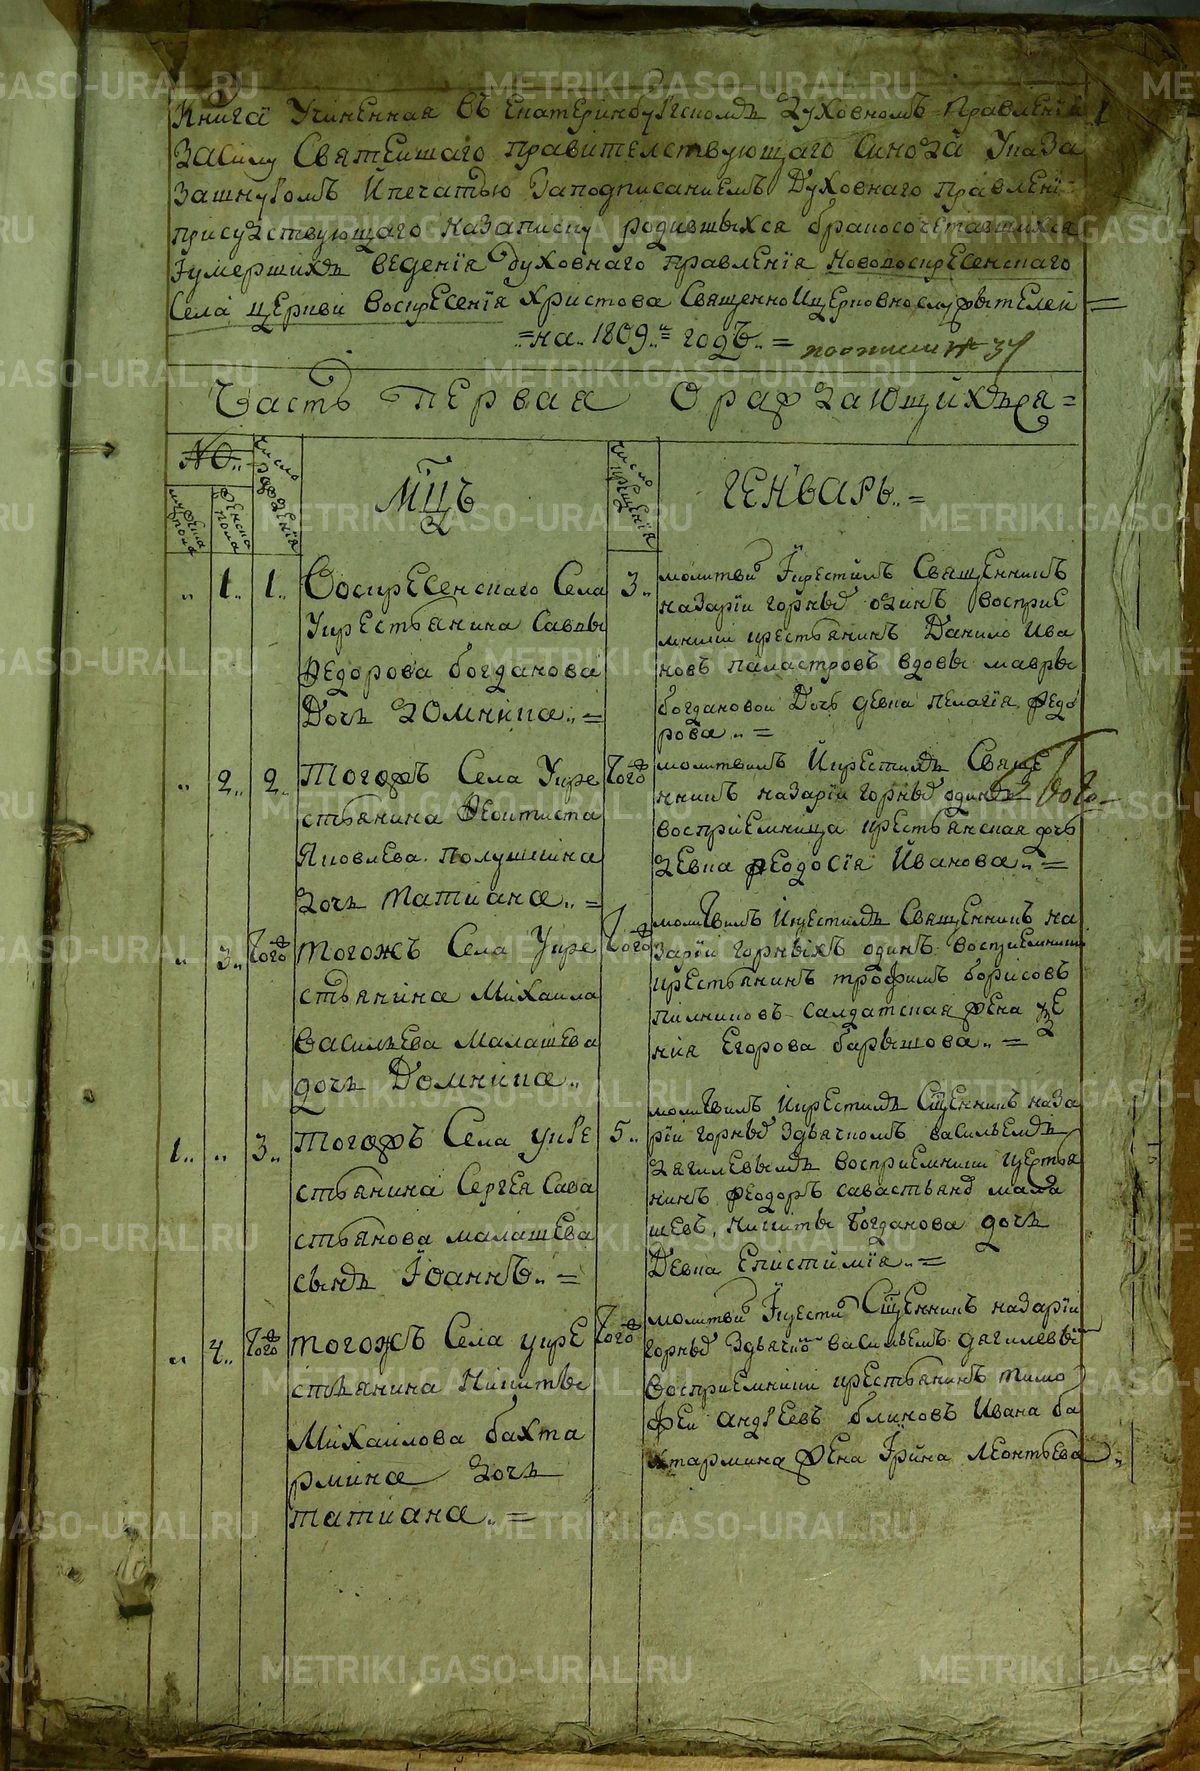 Книга Учиненная въ Екатеринбургскомъ Духовномъ Правленіи
Засилу Святейшаго правителствующаго Синода Указа
Зашнуромъ Ипечатью Заподписаниемъ Духовнаго правленія
присудствующаго назаписку родившыхся бракосочетавшихся
Іумершихъ веденія духовнаго правленія Нововоскресенскаго
Села церкви Воскресенія Христова Священно Ицерковнослужытелей
на 1809 годъ
Часть Первая О раждающихъся
№
мужеска пола
женска пола
число рожденія
Мцъ
число крещенія
Генварь
1 1 Воскресенскаго Села
Укрестьянина Саввы
Федорова богданова
Дочь Домника
3 молитви Їкрестилъ Священникъ
назарїи горныхъ одинъ восприе
мники крестьянинъ Данило Ива
новъ вдовы мавры
богдановои Дочь девка пелагїя Федо
рова
2 2 тогожъ Села Укре
стьянина Феоктиста
Яковлева
дочь татиана
Того молитвилъ Икрестилъ Свяще
нникъ назарїи горныхъ одинъ
восприемница крестьянская дочь
девка феодосїя Иванова
3 Того тогожъ Села Укре
стьянина михаила
Васильева малашева
дочь Домника
Того молитвилъ Икрестилъ Священникъ на
зарїи горныхъ одинъ восприемники
крестьянинъ трофимъ борисовъ
салдатская жена
Егорова барышова
1 3 тогожъ Села укре
стьянина Сергея Сава
стьянова малашева
сынъ Їоаннъ
5 молитвилъ Икрестилъ Сщенникъ наза
рїи горныхъ здьячкомъ васильемъ
дягилевымъ восприемники крестья
нинъ феодоръ савастьяновъ мала
шевъ, никиты богданова дочь
Девка Епистимїя
4 Того тогожъ Села укре
стьянина Никиты
михаилова бахта
рмина дочь
татиана
Того молитви Їкрести Сщенникъ назарїи
горныхъ здьячко васильемъ дягилевы
Восприемники крестьянинъ тимо
феи андреевъ блиновъ Ивана ба
хтармина жена Їрина леонтьева
METRIKI.GASO-URAL.RU